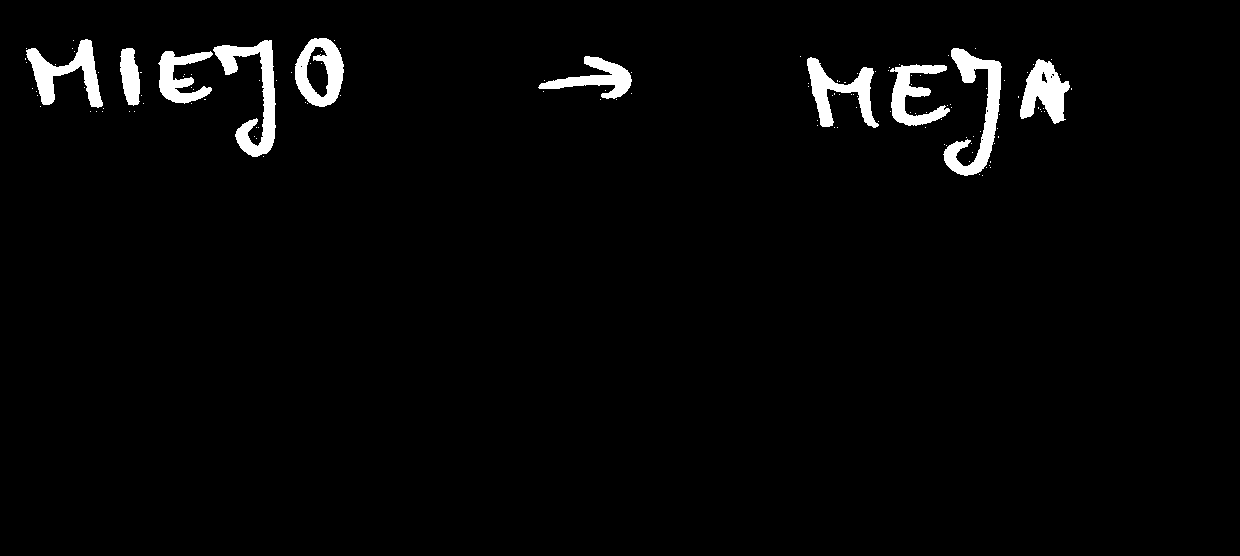 MIEJO → MEJA